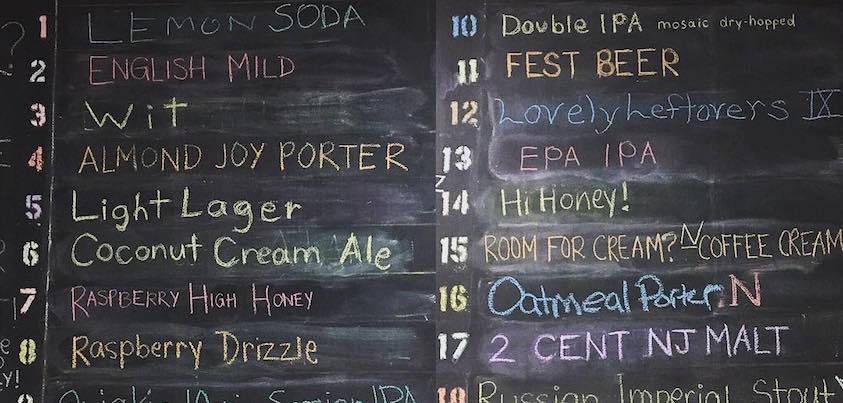 1 LEMON SODA
2 ENGLISH MILD
3 Wit
4 ALMOND JOY PORTER
5 Light Lager
6 Coconut Cream Ale
7 RASPBERRY HIGH HONEY
8 Raspberry Drizzle
9 Session IPA
10 Double IPA mosaic dry-hopped
11 FEST BEER
12 Lovely Leftovers IX
13 EPA IPA
14 Hi Honey!
15 ROOM FOR CREAM? N COFFEE CREAM
16 Oatmeal Porter N
17 2 CENT NJ MALT
18 Russian Imperial Stout